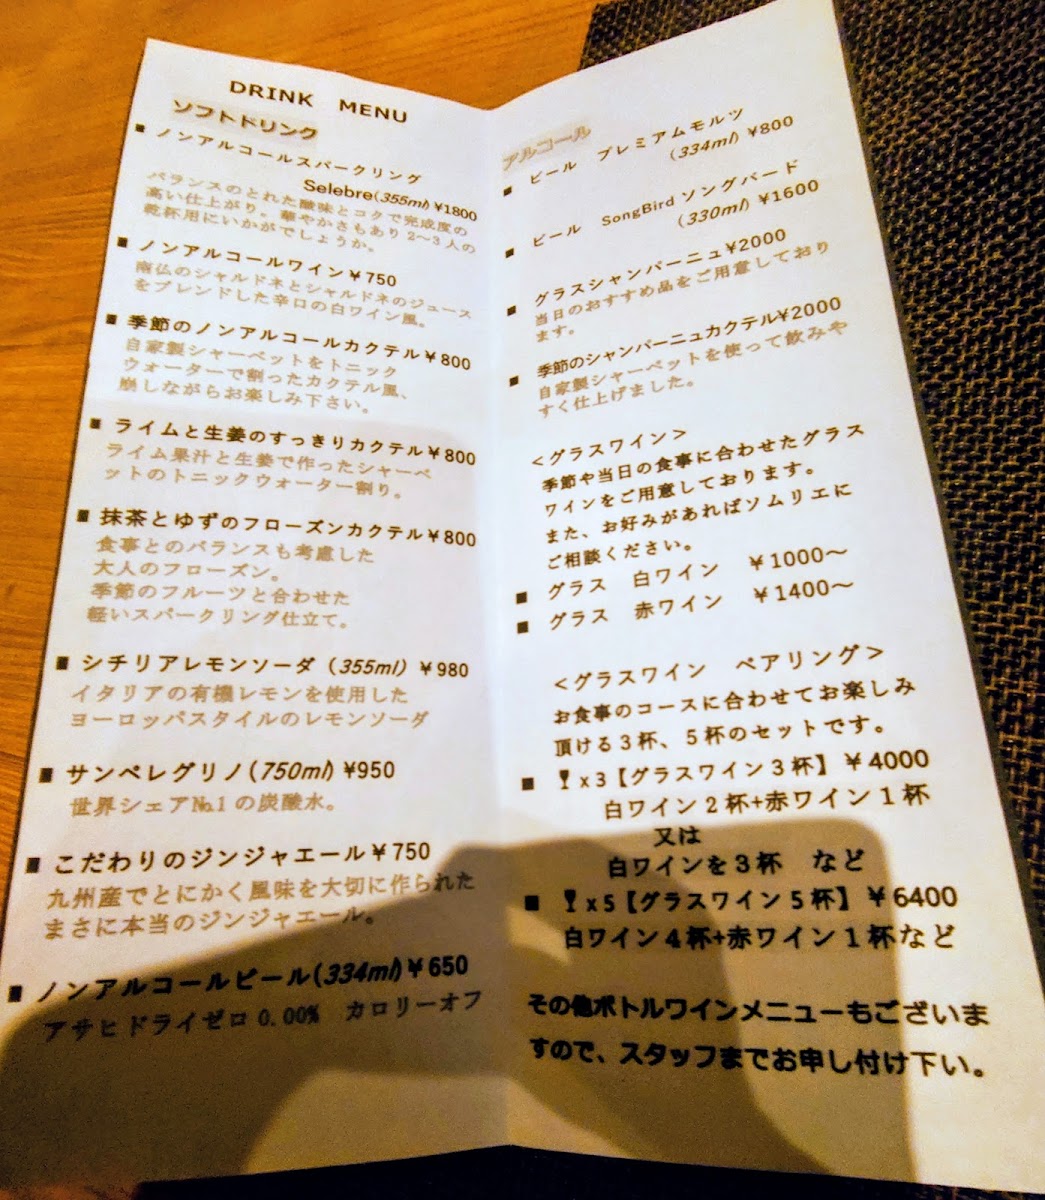 DRINK MENU
ソフトドリンク
■ ノンアルコールスパークリング
Selebre(355ml)¥1800
バランスのとれた酸味とコクで完成度の
高い仕上がり。華やかさもあり2〜3人の
乾杯用にいかがでしょうか。
■ ノンアルコールワイン¥750
南仏のシャルドネとシャルドネのジュース
をブレンドした辛口の白ワイン風。
■ 季節のノンアルコールカクテル¥800
自家製シャーベットをトニック
ウォーターで割ったカクテル風、
崩しながらお楽しみ下さい。
■ ライムと生姜のすっきりカクテル¥800
ライム果汁と生姜で作ったシャーベ
ットのトニックウォーター割り。
■ 抹茶とゆずのフローズンカクテル¥800
食事とのバランスも考慮した
大人のフローズン。
季節のフルーツと合わせた
軽いスパークリング仕立て。
■ シチリアレモンソーダ(355ml)¥980
イタリアの有機レモンを使用した
ヨーロッパスタイルのレモンソーダ
■ サンペレグリノ(750ml)¥950
世界シェア№1の炭酸水。
■ こだわりのジンジャエール¥750
九州産でとにかく風味を大切に作られた
まさに本当のジンジャエール。
■ ノンアルコールビール(334ml)¥650
アサヒドライゼロ0.00% カロリーオフ
アルコール
■ ビール プレミアムモルツ
(334ml)¥800
■ ビール SongBird ソングバード
(330ml)¥1600
■ グラスシャンパーニュ¥2000
当日のおすすめ品をご用意しており
ます。
■ 季節のシャンパーニュカクテル¥2000
自家製シャーベットを使って飲みや
すく仕上げました。
<グラスワイン>
季節や当日の食事に合わせたグラス
ワインをご用意しております。
また、お好みがあればソムリエに
ご相談ください。
■ グラス 白ワイン ¥1000〜
■ グラス 赤ワイン ¥1400〜
<グラスワイン ペアリング>
お食事のコースに合わせてお楽しみ
頂ける3杯、5杯のセットです。
■ x3【グラスワイン3杯】¥4000
白ワイン2杯+赤ワイン1杯
又は
白ワインを3杯 など
■ x5【グラスワイン5杯】¥6400
白ワイン4杯+赤ワイン1杯など
その他ボトルワインメニューもございま
すので、スタッフまでお申し付け下い。